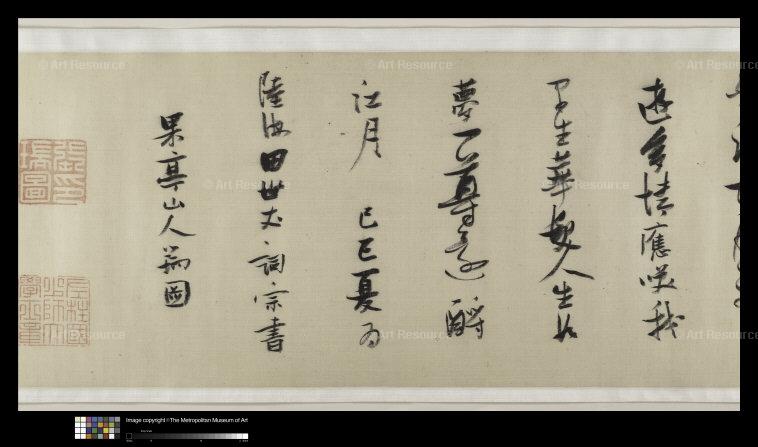 遊多情應咲我
早生華髮人生如
夢一尊還酹
江月 己巳夏為
陸海田世丈詞宗書
果亭山人瑞圖
張瑞圖印
© Art Resource
© Art Resource
© Art Resource
© Art Resource
© Art Resource
© Art Resource
© Art Resource
© Art Resource
Image copyright ©The Metropolitan Museum of Art